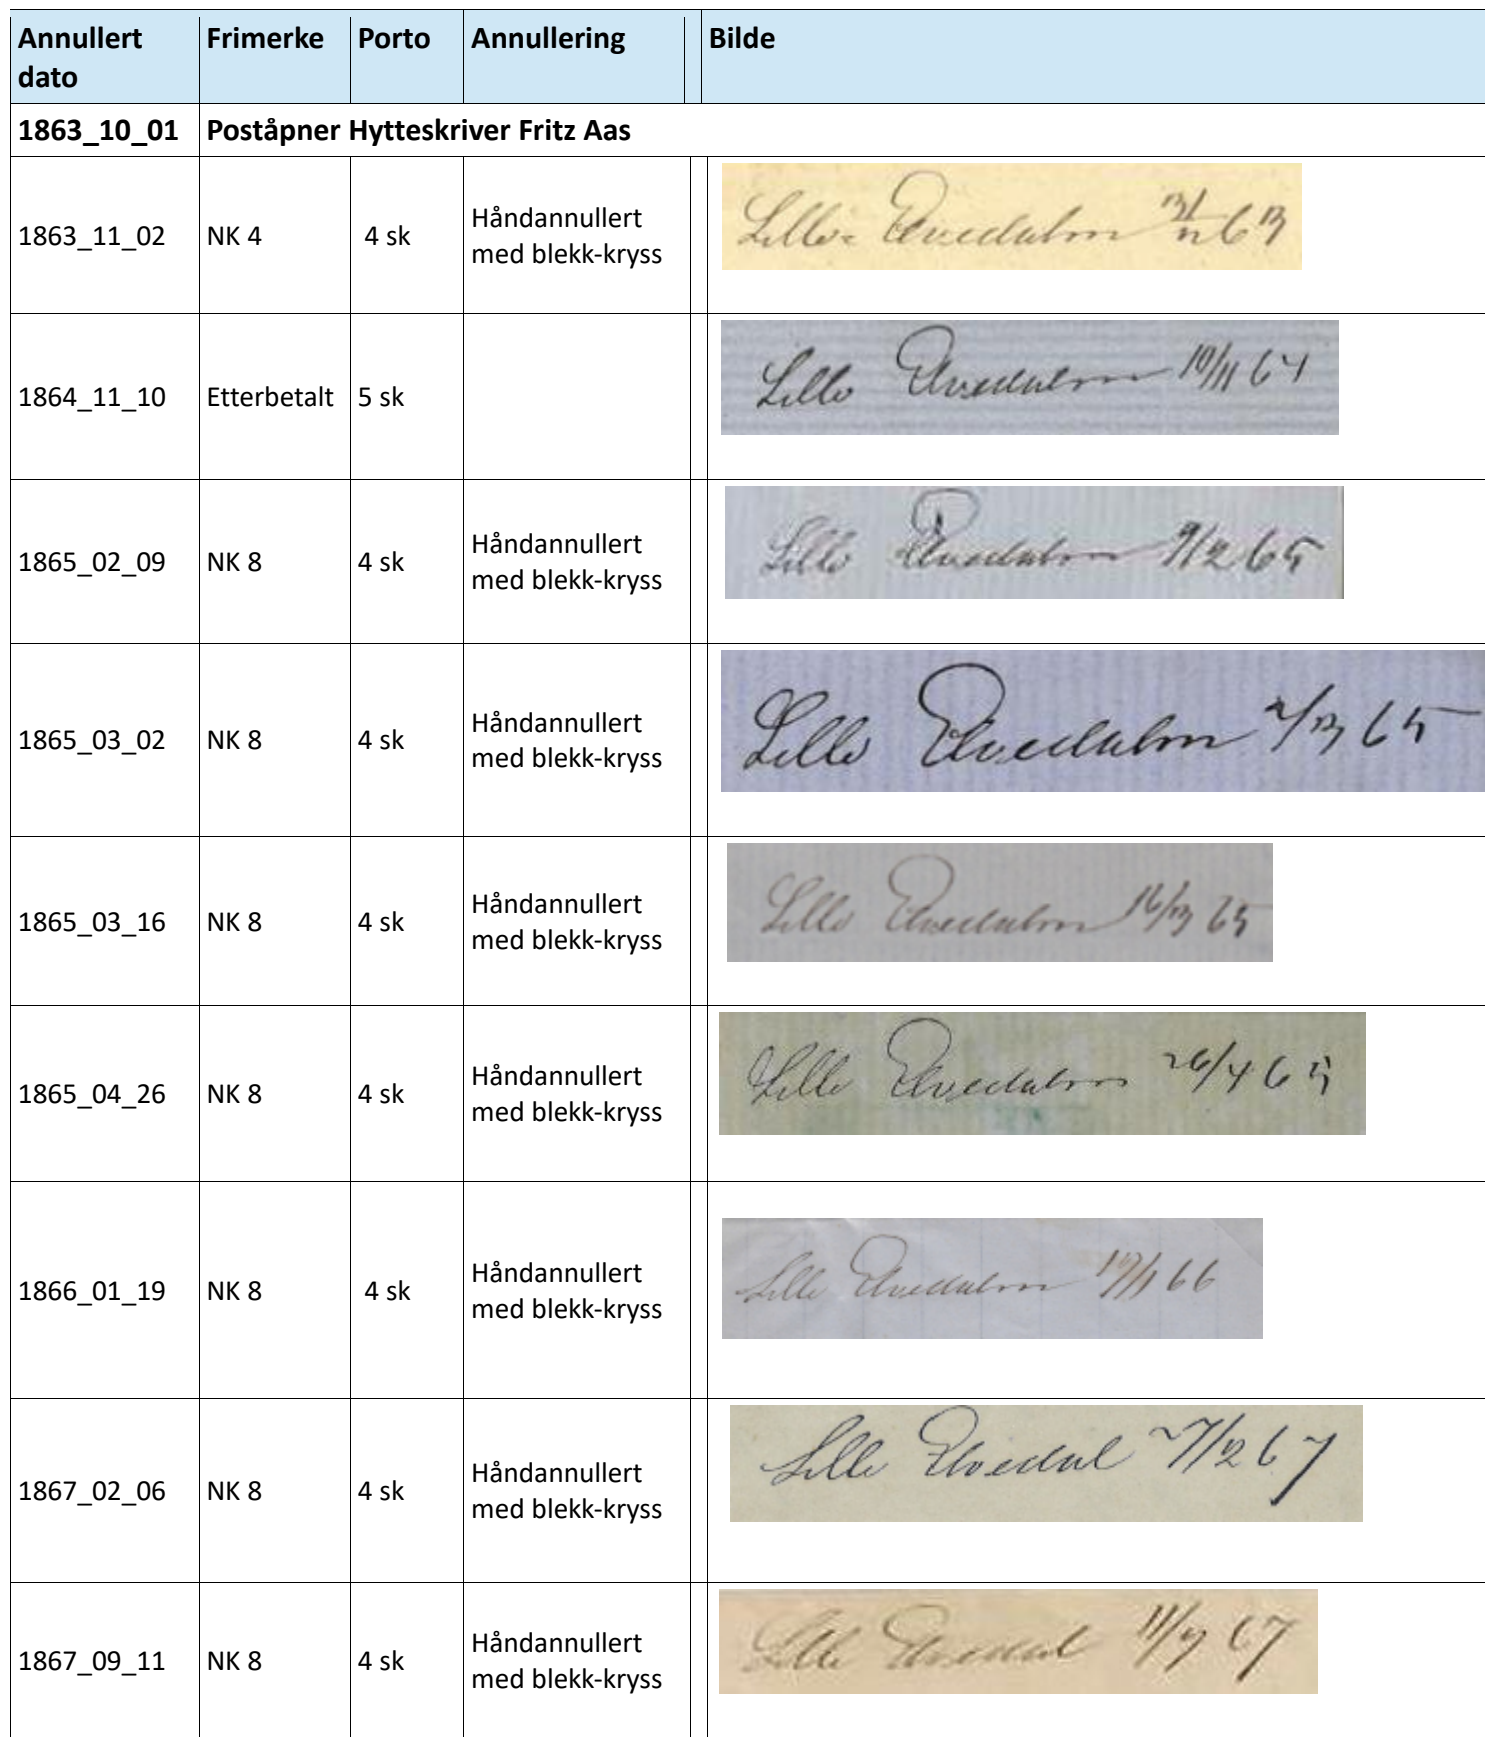 Annullert dato Frimerke Porto Annullering Bilde
1863_10_01 Poståpner Hytteskriver Fritz Aas
1863_11_02 NK 4 4 sk Håndannullert med blekk-kryss Lille Elvedalen 63
1864_11_10 Etterbetalt 5 sk Lille Elvedalen 10/11 64
1865_02_09 NK 8 4 sk Håndannullert med blekk-kryss Lille Elvedalen 9/2 65
1865_03_02 NK 8 4 sk Håndannullert med blekk-kryss Lille Elvedalen 2/3 65
1865_03_16 NK 8 4 sk Håndannullert med blekk-kryss Lille Elvedalen 16/3 65
1865_04_26 NK 8 4 sk Håndannullert med blekk-kryss Lille Elvedalen 26/4 65
1866_01_19 NK 8 4 sk Håndannullert med blekk-kryss Lille Elvedalen 19/1 66
1867_02_06 NK 8 4 sk Håndannullert med blekk-kryss Lille Elvedal 67
1867_09_11 NK 8 4 sk Håndannullert med blekk-kryss Lille Elvedal 11/9 67